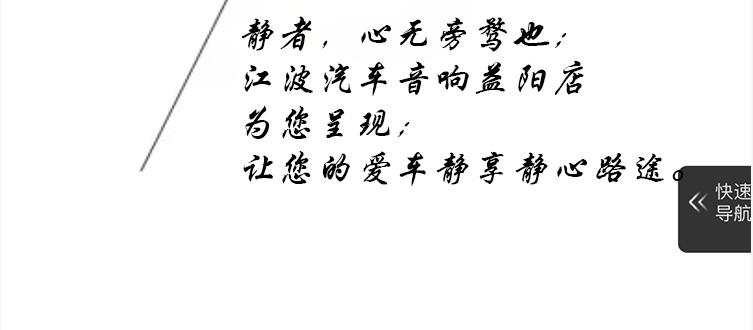 静者，心无旁骛也；
江波汽车音响益阳店
为您呈现；
让您的爱车静享静心路途。
快速
导航